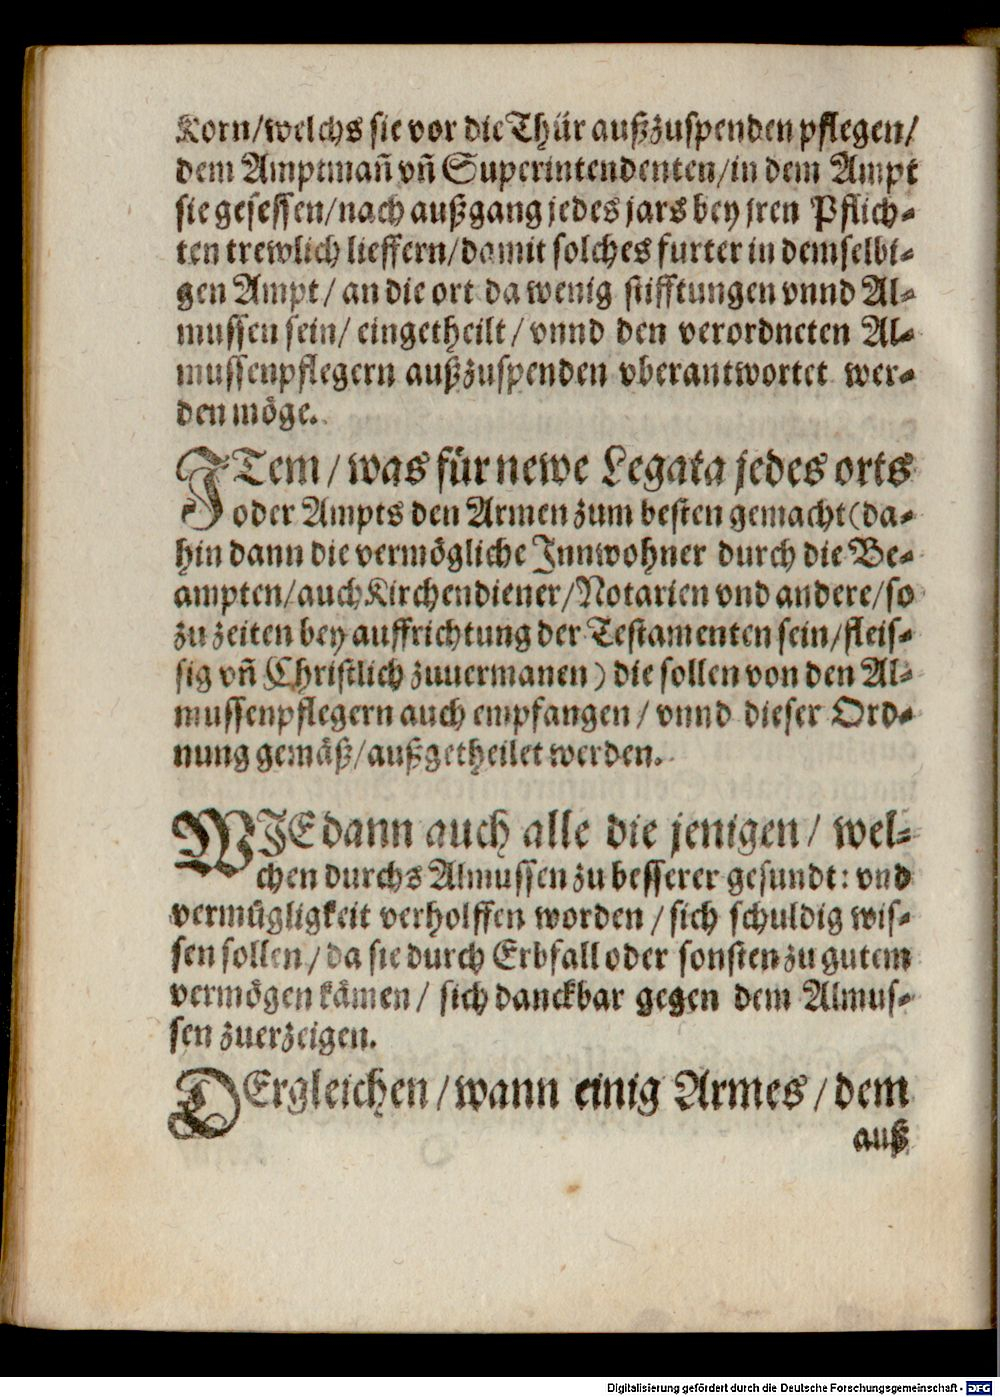 Korn/welchs sie vor die Thür außzuspenden pflegen/
dem Amptmañ vñ Superintendenten/in dem Ampt
sie gesessen/nach außgang jedes jars bey jren Pflich⸗
ten trewlich lieffern/damit solches furter in demselbi⸗
gen Ampt/ an die ort da wenig stifftungen vnnd Al⸗
mussen sein/ eingetheilt/ vnnd den verordneten Al⸗
mussenpflegern außzuspenden vberantwortet wer⸗
den möge.
ITem/ was für newe Legata jedes orts
oder Ampts den Armen zum besten gemacht(da⸗
hin dann die vermögliche Innwohner durch die Be⸗
ampten/auch Kirchendiener/Notarien vnd andere/so
zu zeiten bey auffrichtung der Testamenten sein/fleis⸗
sig vñ Christlich zuuermanen) die sollen von den Al⸗
mussenpflegern auch empfangen/ vnnd dieser Ord⸗
nung gemäß/außgetheilet werden.
WIE dann auch alle die jenigen/ wel⸗
chen durchs Almussen zu besserer gesundt: vnd
vermügligkeit verholffen worden/sich schuldig wis⸗
sen sollen/da sie durch Erbfall oder sonsten zu gutem
vermögen kämen/ sich danckbar gegen dem Almus⸗
sen zuerzeigen.
DErgleichen/wann einig Armes/dem
auß
Digitalisierung gefördert durch die Deutsche Forschungsgemeinschaft - DFG